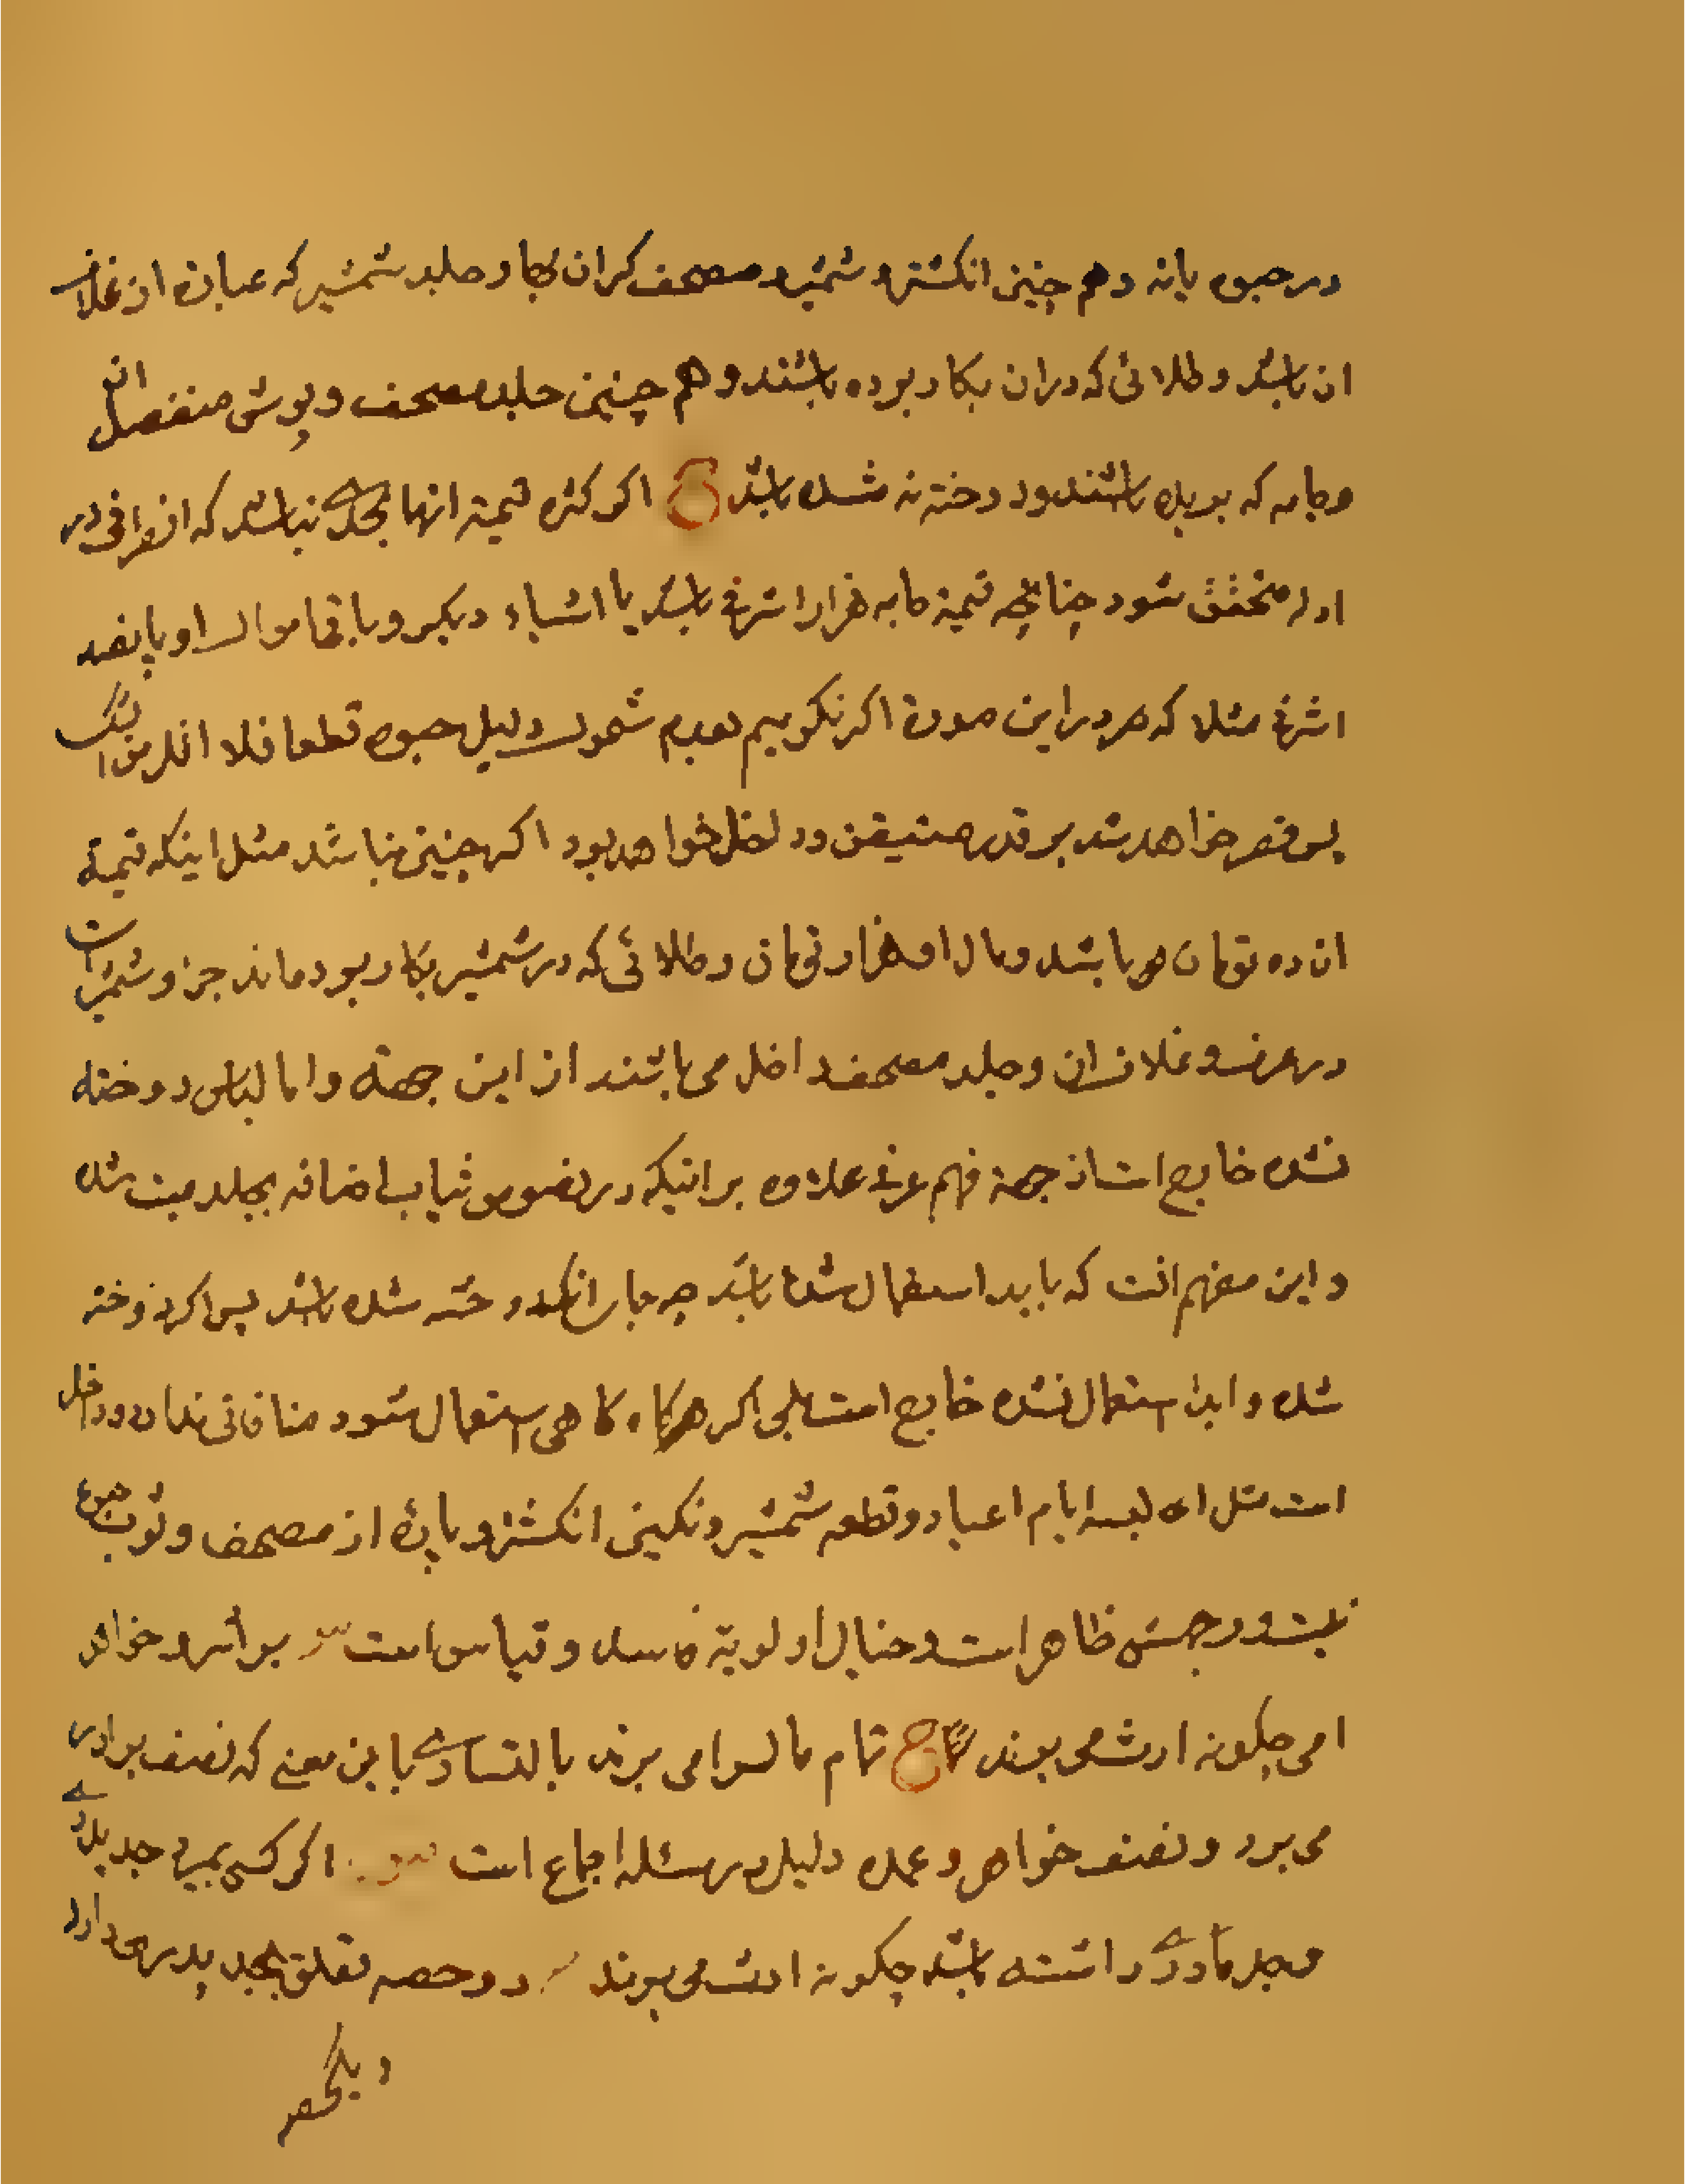 در حبوه یا نه و هم چنین انکشتر و شمشیر و مصحف کران بها و جلد شمشیر که عبارة از غلاف
ان باشد و طلائی که در ان بکار برده باشند و هم چنین جلد مصحف و پوش منفصل ان
و جامه که بریده باشند و دوخته نه شده باشد ج اکر کثره قیمة انها بحدی نباشد که انصرافی در
ادله متحقق شود چنانچه قیمة جامه هزار اشرفی باشد یا اشیاء دیکر و باقی اموال او پانصد
اشرفی مثلا که در این صورة اکر نکوییم بعدم شمول دلیل حبوه قطعا فلا اقل من الشک
پس قصر خواهد شد بر قدر متیقن و داخل خواهد بود اکر چنین نباشد مثل اینکه قیمة
ان ده تومان باشد و مال او هزار تومان و طلائی که در شمشیر بکار برده اند جزو شمشیر است
در عرف و غلاف ان و جلد مصحف داخل می باشند از این جهة و اما لباس دوخته
نشده خارج است از جهة فهم عرفی علاوه بر اینکه در نصوص ثیاب اضافه بجلد میت شده
و این مفهم انست که باید استعمال شده باشد چه جای انکه دوخته شده باشد پس اکر دوخته
شده و ابدا استعمال نشده خارج است بلی اکر هرکاه کاهی استعمال شود منافاتی ندارد و داخل
است مثل البسه ایام اعیاد و قطعه شمشیر و نکین انکشتر و پارۀ از مصحف و ثوب حبوه
نیست و وجهش ظاهر است و خیال اولویة فاسد و قیاس است س برادر و خواهر
امی چکونه ارث می برند ج تمام مال را می برند بالتساوی باین معنی که نصف برادر
می برد و نصف خواهر و عمده دلیل در مسئله اجماع است س اکر کسی بمیرد جد پدری
و جد مادری داشته باشد چکونه ارث می برند دو حصه تعلق بجد پدری دارد
و یکحصه